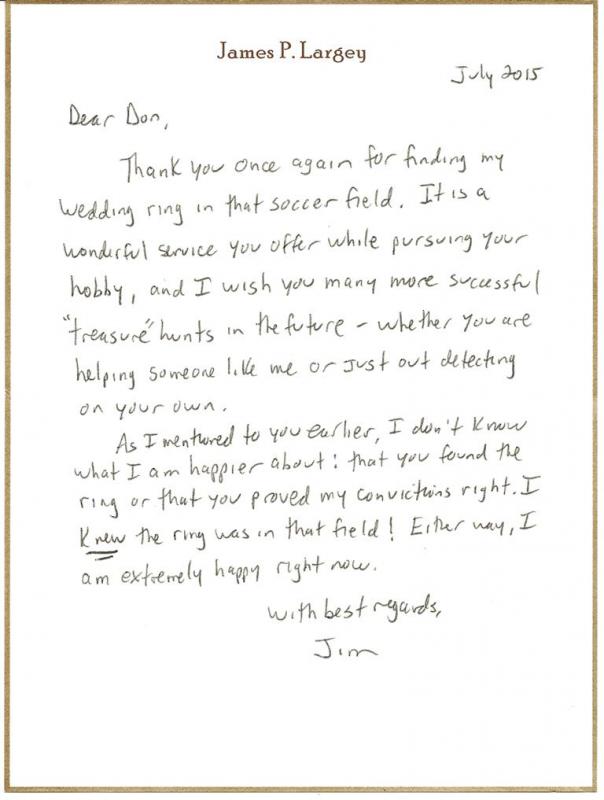 James P. Largey
July 2015
Dear Don,
Thank you once again for finding my
wedding ring in that soccer field. It is a
wonderful service you offer while pursuing your
hobby, and I wish you many more successful
"treasure" hunts in the future - whether you are
helping someone like me or just out detecting
on your own.
As I mentioned to you earlier, I don't know
what I am happier about: that you found the
ring or that you proved my convictions right. I
knew the ring was in that field! Either way, I
am extremely happy right now.
With best regards,
Jim